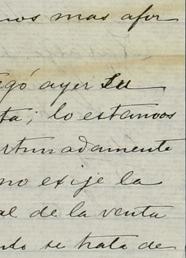 nos mas afor
egó ayer su
ta; lo estamos
rtunadamente
no exije la
al de la venta
ndo se trata de